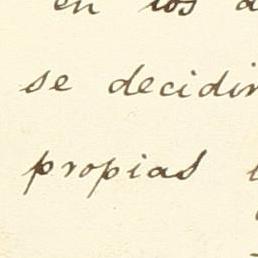 en los
se decidir
propias